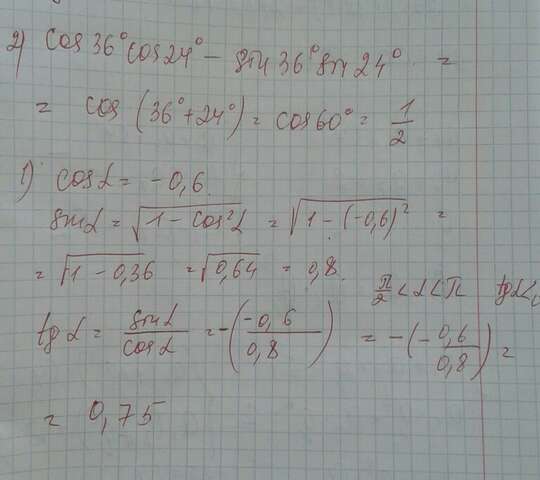 2) cos 36° cos 24° − sin 36° sin 24° =
= cos (36° + 24°) = cos 60° = 1/2
1) cos α = −0,6
sin α = √(1 − cos² α) = √(1 − (−0,6)²) =
= √(1 − 0,36) = √0,64 = 0,8
π/2 < α < π tg α <
tg α = sin α / cos α = −(−0,6 / 0,8) = −(−0,6 / 0,8) =
= 0,75